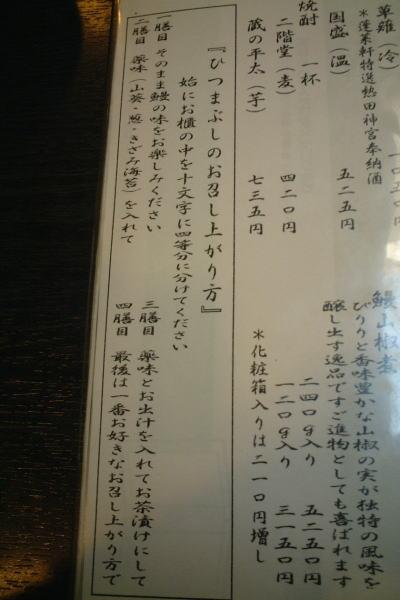 草薙（冷）
＊蓬莱軒特選熱田神宮奉納酒
国盛（温） 五二五円
焼酎 一杯
二階堂（麦） 四二〇円
蔵の平太（芋） 七三五円
鰻山椒煮
ぴりりと香味豊かな山椒の実が独特の風味を
醸し出す逸品ですご進物としても喜ばれます
二四〇g入り 五二五〇円
一二〇g入り 三一五〇円
＊化粧箱入りは二一〇円増し
『ひつまぶしのお召し上がり方』
始にお櫃の中を十文字に四等分に分けてください
膳目 そのまま鰻の味をお楽しみください
二膳目 薬味（山葵・葱・きざみ海苔）を入れて
三膳目 薬味とお出汁を入れてお茶漬けにして
四膳目 最後は一番お好きなお召し上がり方で